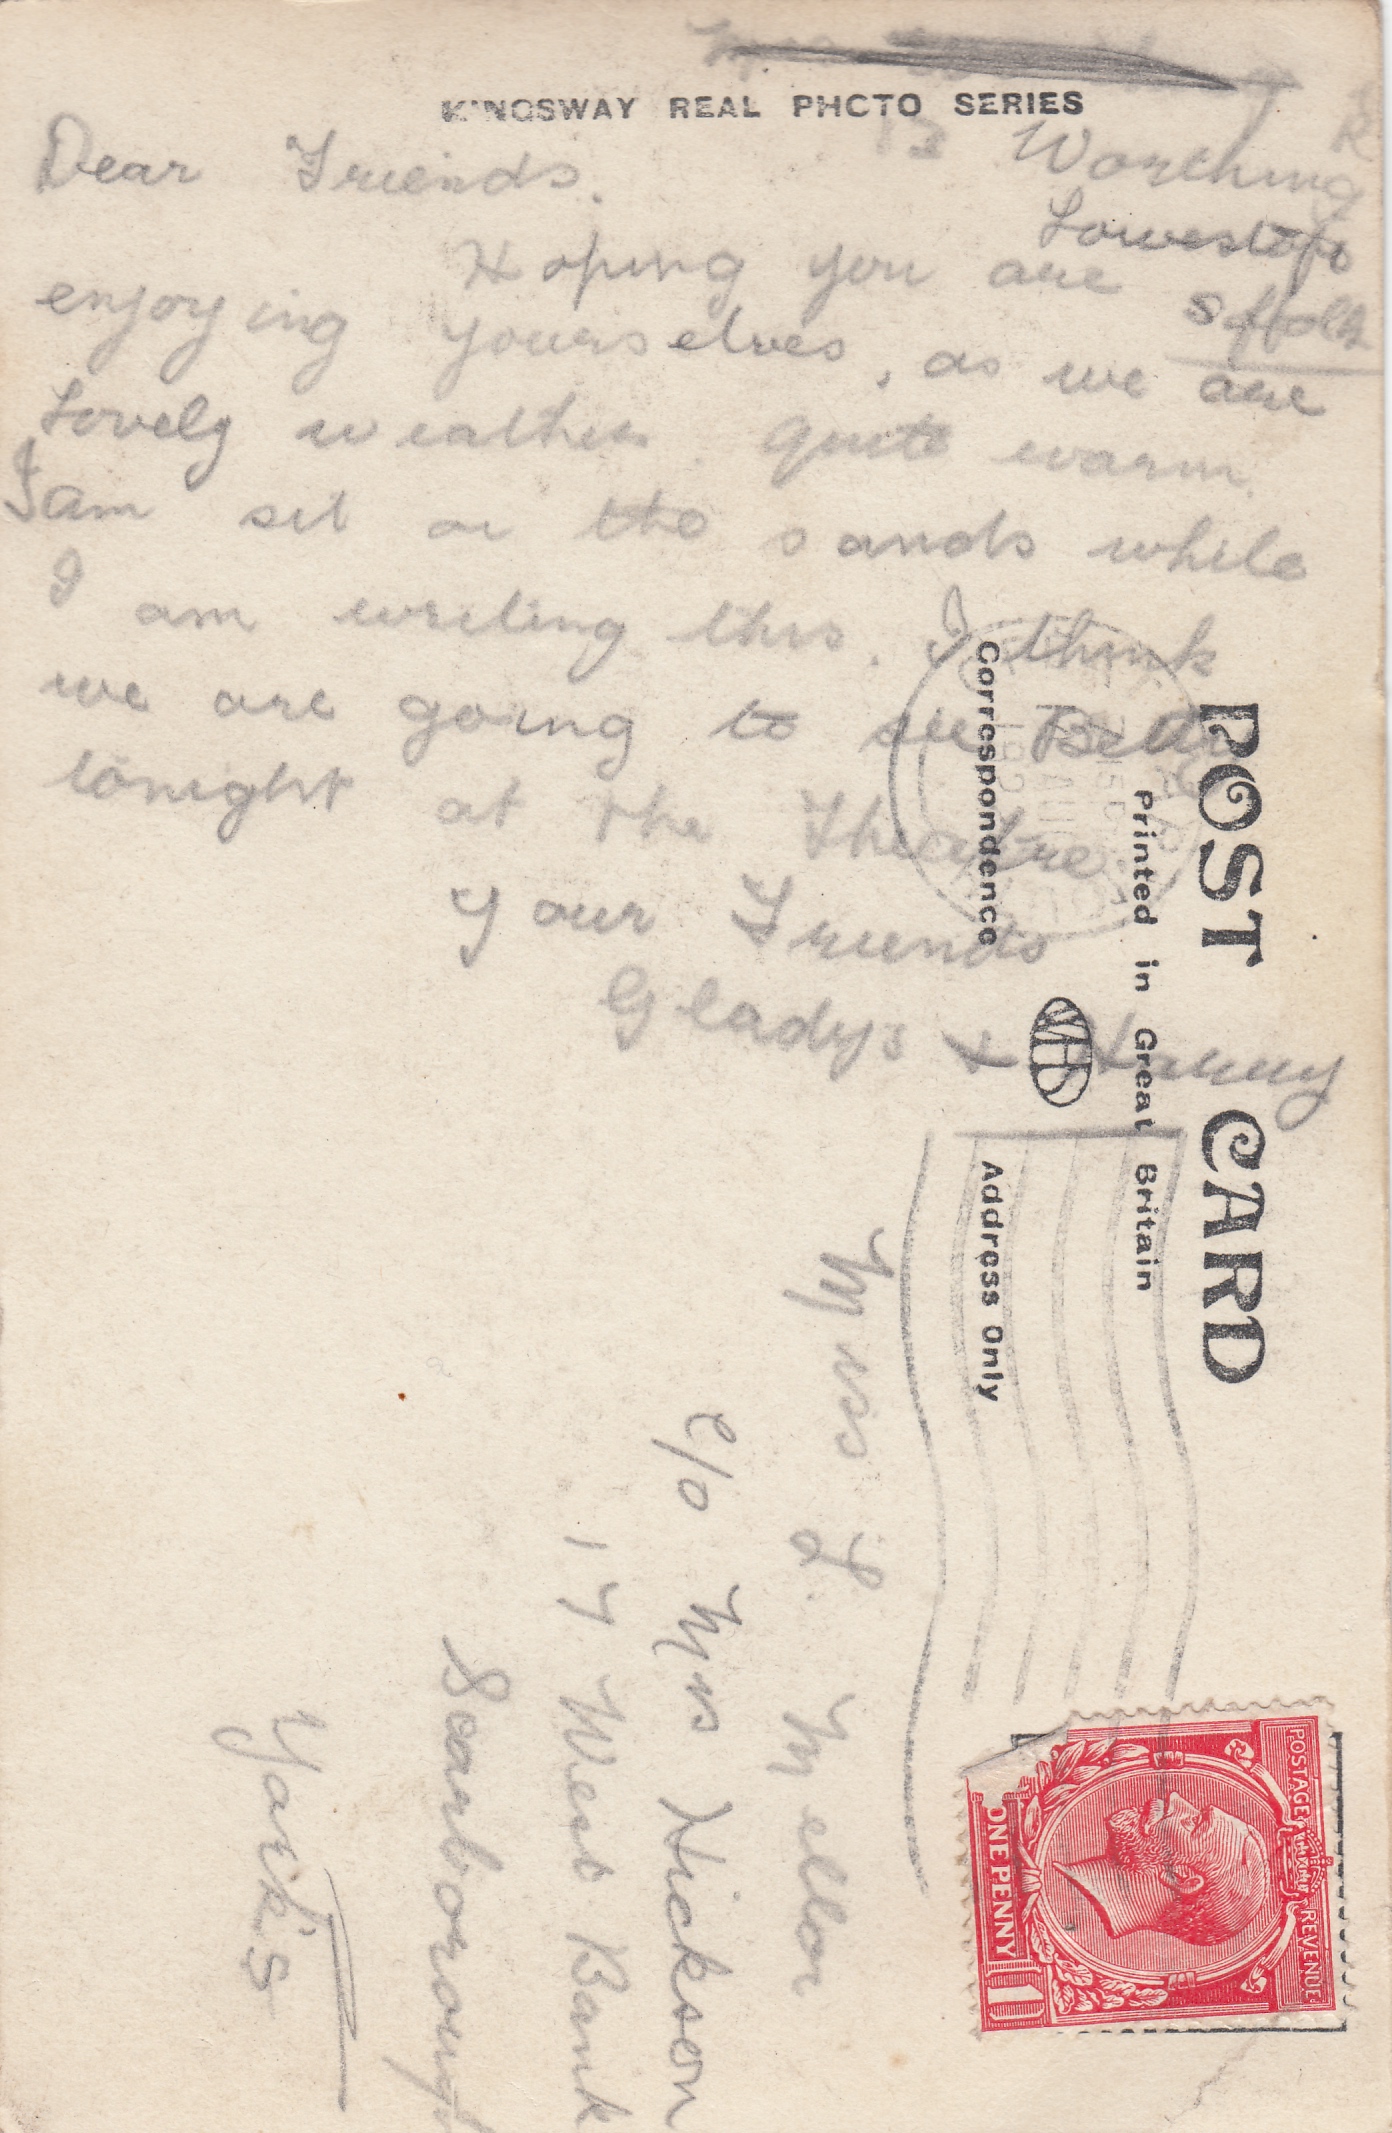 KINGSWAY REAL PHOTO SERIES
13 Worthing
Lowestoft
Sffolk
Dear Friends.
Hoping you are
enjoying yourselves, as we are
Lovely weather quite warm.
I am sit on the sands while
I am writing this. I think
we are going to see
tonight at the Theatre
Your Friends
Gladys & Harry
POST CARD
Printed in Great Britain
Correspondence
Address Only
Miss L. Mellor
c/o Mrs Hickson
17 West Bank
Scarborough
York's
POSTAGE REVENUE
ONE PENNY